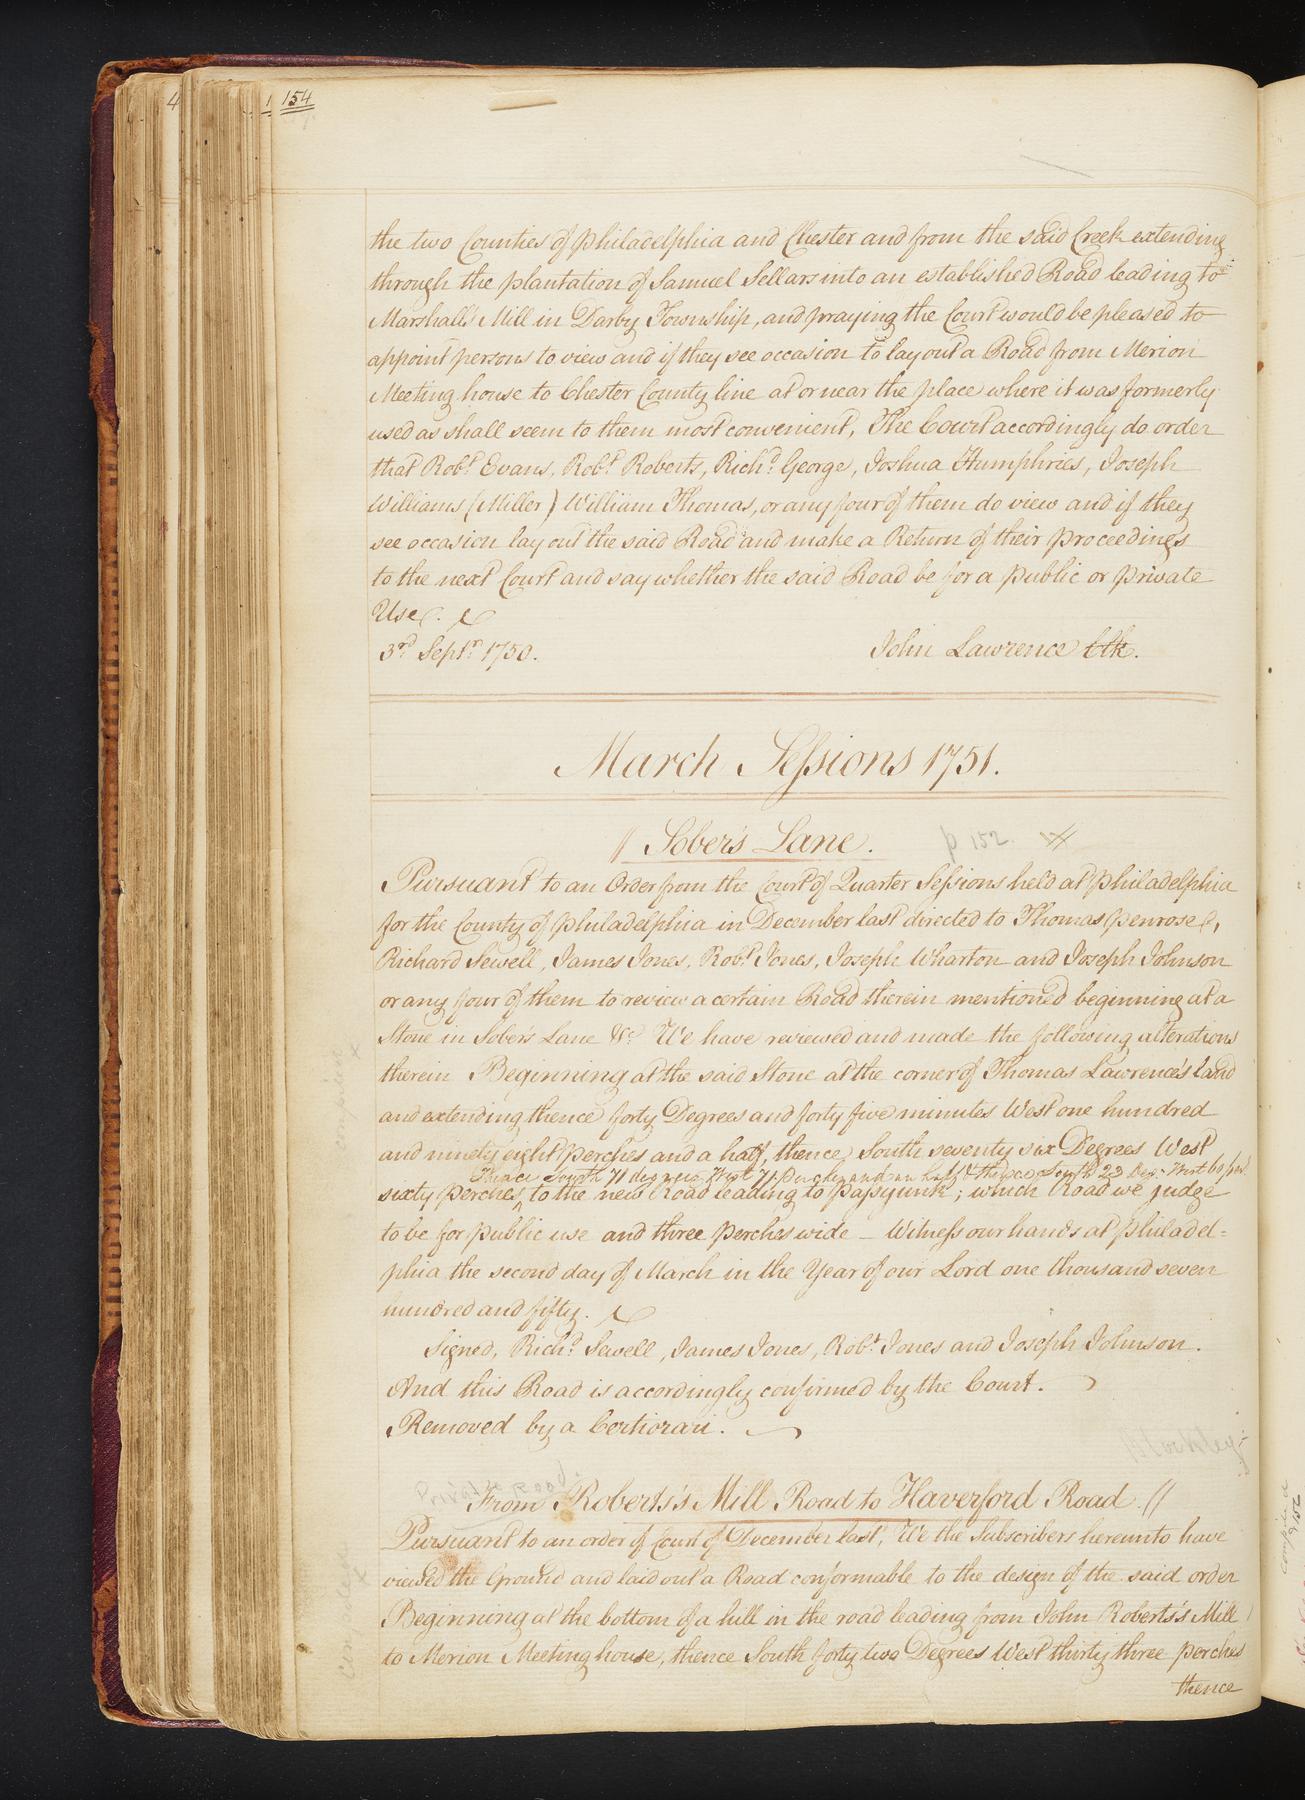 154
the two Counties of Philadelphia and Chester and from the said Creek extending
through the plantation of Samuel Sellars into an established Road leading to
Marshall's Mill in Darby Township, and praying the Court would be pleased to
appoint persons to view and if they see occasion to lay out a Road from Merion
Meeting house to Chester County line at or near the place where it was formerly
used as shall seem to them most convenient, The Court accordingly do order
that Robt. Evans, Robt. Roberts, Richd. George, Joshua Humphries, Joseph
Williams (Miller) William Thomas, or any four of them do view and if they
see occasion lay out the said Road and make a Return of their proceedings
to the next Court and say whether the said Road be for a public or private
Use.
3rd Septr. 1750. John Lawrence Clk.
March Sessions 1751.
// Sober's Lane. p 152.
Pursuant to an Order from the Court of Quarter Sessions held at Philadelphia
for the County of Philadelphia in December last directed to Thomas Penrose,
Richard Sewell, James Jones, Robt. Jones, Joseph Wharton and Joseph Johnson
or any four of them to review a certain Road therein mentioned beginning at a
Stone in Sober's Lane &c. We have reviewed and made the following alterations
therein Beginning at the said Stone at the corner of Thomas Lawrence's Land
and extending thence forty Degrees and forty five minutes West one hundred
and ninety eight perches and a half, thence South seventy six Degrees West
Thence South 71 degrees West 71 perches and an half & thence South 29 Deg. West 60 per.
sixty perches, ^ to the new Road leading to Passyunk; which Road we judge
to be for public use and three perches wide – Witness our hands at Philadel=
phia the second day of March in the Year of our Lord one thousand seven
hundred and fifty.
Signed, Richd. Sewell, James Jones, Robt. Jones and Joseph Johnson.
And this Road is accordingly confirmed by the Court.
Removed by a Certiorari.
Blockley
Private Road.
From Roberts's Mill Road to Haverford Road. //
Pursuant to an order of Court of December last, We the Subscribers hereunto have
viewed the Ground and laid out a Road conformable to the design of the said order
Beginning at the bottom of a hill in the road leading from John Roberts's Mill
to Merion Meeting house, thence South forty two Degrees West thirty three perches
thence